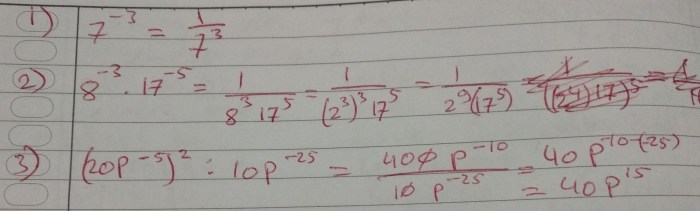 1) 7⁻³ = 1/7³
2) 8⁻³ · 17⁻⁵ = 1/(8³ 17⁵) = 1/((2³)³ 17⁵) = 1/(2⁹(17⁵))
3) (20p⁻⁵)² : 10p⁻²⁵ = 400 p⁻¹⁰/(10 p⁻²⁵) = 40 p⁻¹⁰⁻⁽⁻²⁵⁾
= 40p¹⁵